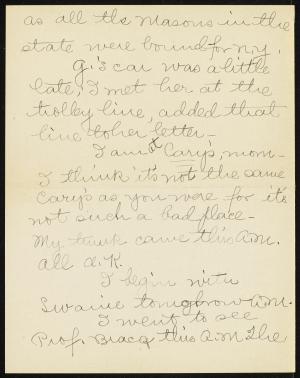 as all the Masons in the
state were bound for N.Y.
G.'s car was a little
late, I met her at the
trolley line, added that
line to her letter -
I am at Cary's, mom -
I think it's not the same
Cary's as you were for it's
not such a bad place -
My trunk came this A.M.
all O.K.
I begin with
Swaine tomorrow A.M.
I went to see
Prof. Bracq this A.M. The